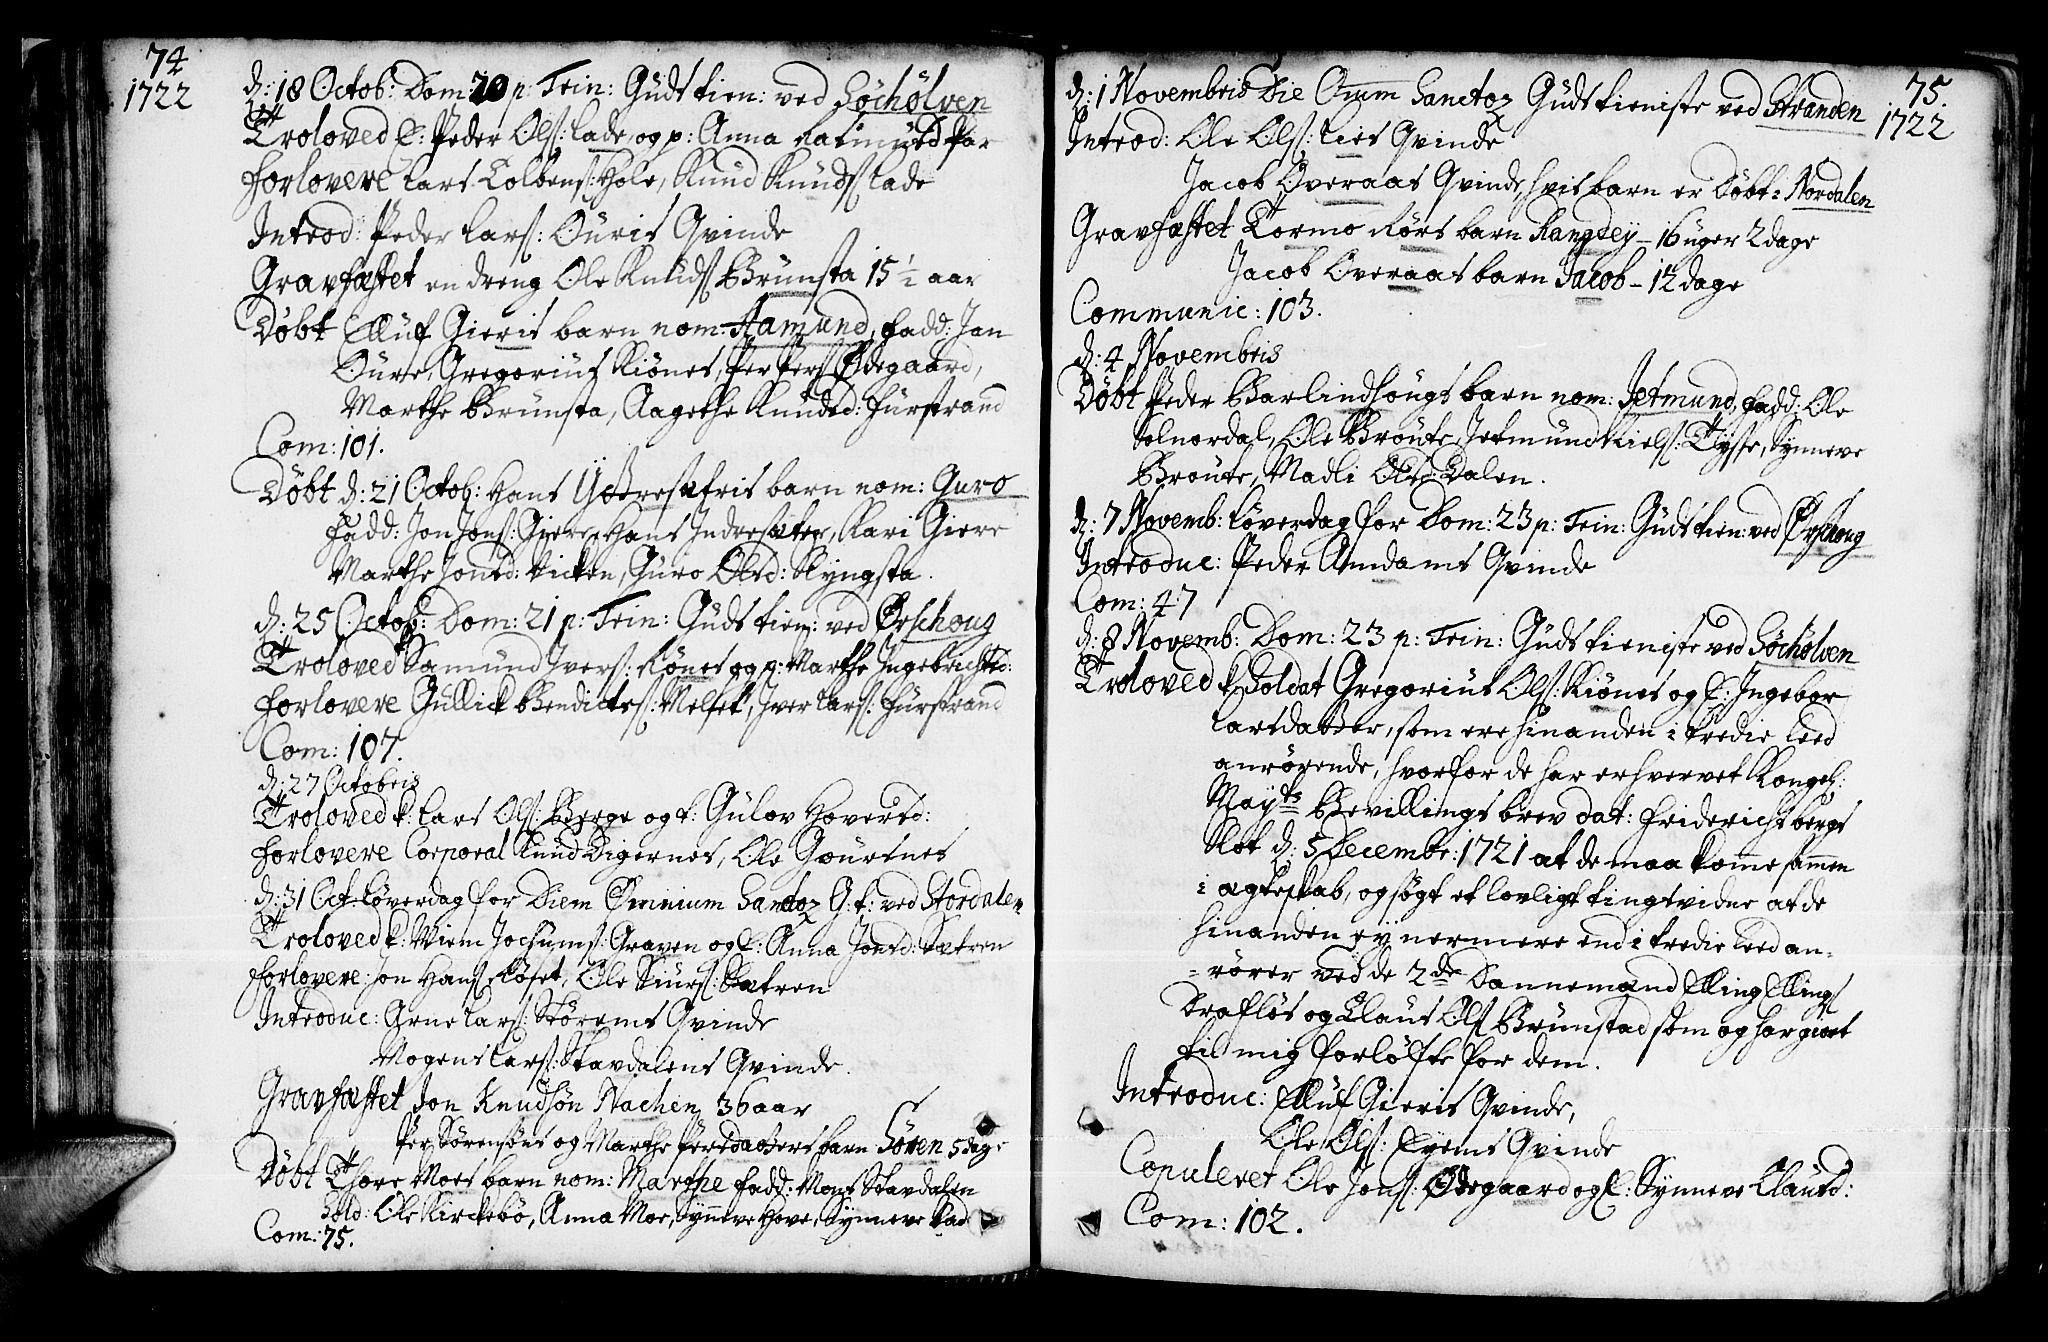 74
1722
d: 18 Octob: Dom: 20 p: Trin: Guds tien: ved Söchölven
Troloved E: Peder Ols: Lade og p: Anna Rasmusd Par
Forlovere Lars Colbens: Hole, Knud Knuds Lade
Introd: Peder Lars: Ouris Qvinde
Gravfæstet en dreng Ole Knuds Brunsta 15 1/2 aar
Döbt Elluf Gieris barn nom: Aamund, Fadd: Jan
Oure, Gregorius Kiönes, Per Pers Ødegaard,
Marthe Brunsta, Aagethe Knudsd: Furstrand
Com: 101.
Döbt d: 21 Octob: Hans Ydresætris barn nom: Guro
Fadd: Jon Jons: Giere, Hans Indresæter, Kari Giere
Marthe Jonsd: Vicken, Guro Olsd: Slyngsta.
d: 25 Octob: Dom: 21 p: Trin: Guds tien: ved Ørschoug
Troloved Samund Ivers: Rönes og p: Marthe Ingebrichtsd:
Forlovere Gullick Bendicts: Melsek, Iver Lars: Furstrand
Com: 107.
d: 27 Octobris
Troloved E: Lars Ols: Berge og E: Gulov Hoversd:
Forlovere Corporal Knud Digernes, Ole Gourtnes
d: 31 Oct: Löverdag for Diem Omnium Sanctoz G: t: ved Stordalen
Troloved E: Wiem Jochums: Graven og E: Anna Jonsd: Sætren
Forlovere: Jon Hans Röset, Ole Siurs: Sætren
Introduc: Arne Lars: Störems Qvinde
Mogens Lars: Stavdalens Qvinde.
Gravfæstet Jon Knudsön Stachen 36 aar
Per Sörensöns og Marthe Persdatters barn Sören 5 dage
Döbt Thore Moes barn nom: Marthe Fadd: Mons Stavdalen
Sold: Ole Kirckebö, Anna Moe, Synneve Hove, Synneve Lad
Com: 75.
75.
1722
d: 1 Novembris Die Omm Sanctoz Guds tieniste ved Stranden
Introd: Ole Ols: Lies Qvinde
Jacob Overaas Qvinde, hvis barn er döbt i Nordalen
Gravfæstet Tormo Rörs barn Rangdey - 16 uger 2 dage
Jacob Overaas barn Jacob - 12 dage
Communic: 103.
d: 4 Novembris
Döbt Peder Barlindhougs barn nom: Jetmund, Fadd: Ole
Solnordal, Ole Broute, Jetmund Niels: Tysse, Synneve
Broute, Madli Olsd: Dalen.
d: 7 Novemb: Löverdag for Dom: 23 p: Trin: Guds tien: ved Ørschoug
Introduc: Peder Amdams Qvinde
Com: 47
d: 8 Novemb: Dom: 23 p: Trin: Guds tieniste ved Söchölven
Troloved Soldat Gregorius Ols: Kiönes og E: Ingebor
Larsdatter, som ere hinanden i tredie leed
anrörende, hvorfor de har erhvervet Kongel:
Mayts Bevillings brev dat: Friderichs bergs
Slot d: 5 Decembr: 1721 at de maa komme sammen
i ægteskab, og søgt et lovligt tingsvidne at de
hinanden ey nermere end i tredie leed an-
-rörer ved de 2de Dannemænd Elling Ellings
Drafløs og Claus Ols Brunstad som og har giort
til mig forløfte for dem.
Introduc: Elluf Gieris Qvinde,
Ole Ols: Eyems Qvinde
Copuleret Ole Jons: Ødegaard og E: Synneve Clausd:
Com: 102.